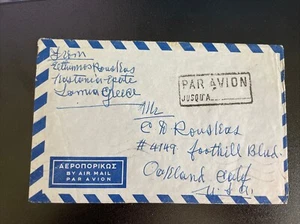 From
Efthimios Rouskas
Lamia Greece
PAR AVION
JUSQU'A
Mr
C D Rouskas
# 4149 Foothill Blvd.
Oakland Calif
U.S.A.
ΑΕΡΟΠΟΡΙΚΩΣ
BY AIR MAIL
PAR AVION